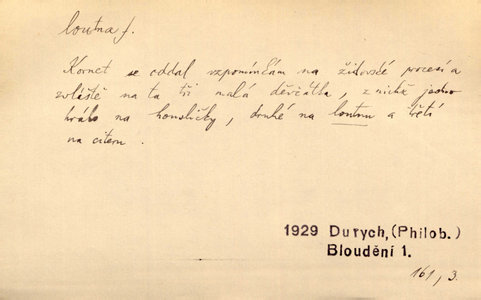 loutna f.
Kornet se oddal vzpomínkám na židovské procesí a
zvláště na ta tři malá děvčátka, z nichž jedno
hrálo na housličky, druhé na loutnu a třetí
na citeru.
1929 Durych, (Philob.)
Bloudění 1.
161, 3.